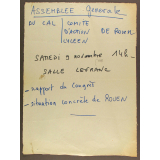 ASSEMBLEE Generale
DU CAL [COMITE
D'ACTION DE ROUEN
LYCEEN
SAMEDI 9 novembre 14h
SALLE LEFRANC
- rapport du Congrès
- situation concrète de ROUEN